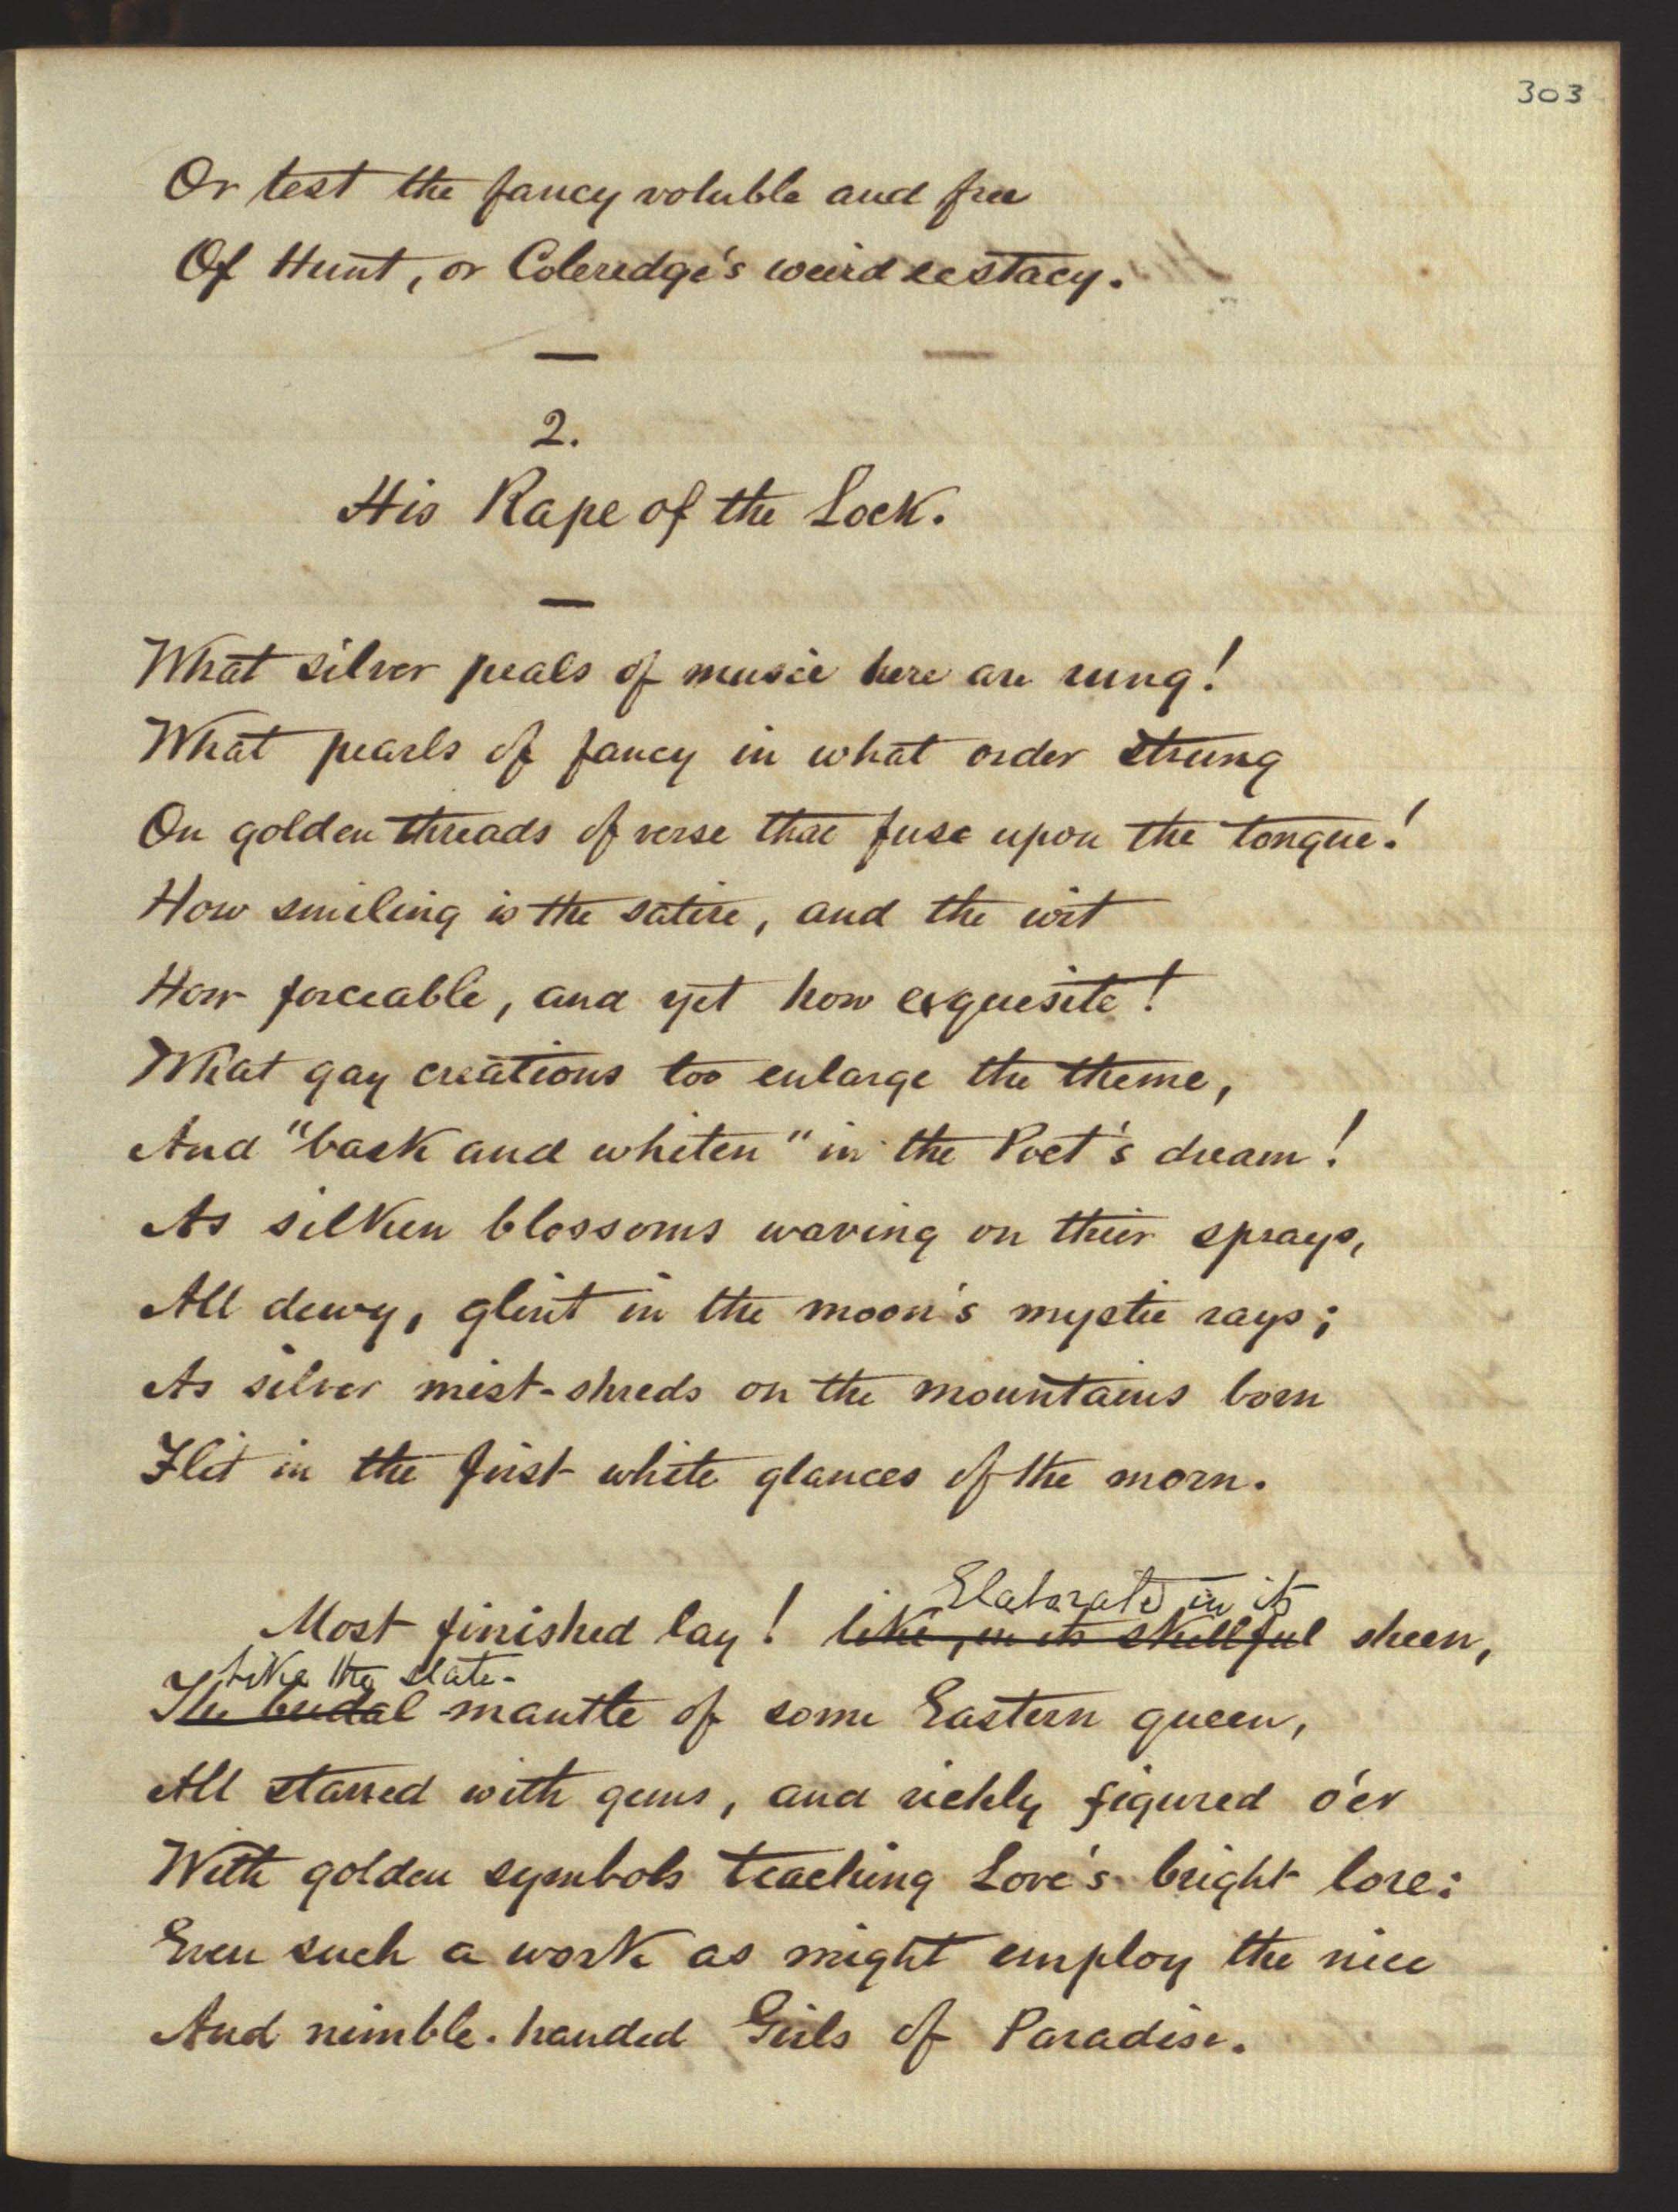 303
Or test the fancy voluble and free
Of Hunt, or Coleredge's weird ecstacy.
2.
His Rape of the Lock.
What silver peals of music here are rung!
What pearls of fancy in what order strung
On golden threads of verse that fuse upon the tongue!
How smiling is the satire, and the wit
How forceable, and yet how exquisite!
What gay creations too enlarge the theme,
And "bask and whiten" in the Poet's dream!
As silken blossoms waving on their sprays,
All dewy, glint in the moon's mystic rays;
As silver mist-shreds on the mountains born
Flit in the first white glances of the morn.
Elaborate in its
Most finished lay! like, in its skillful sheen,
Like the state-
The bridal mantle of some Eastern queen,
All starred with gems, and richly figured o'er
With golden symbols teaching Love's bright lore:
Even such a work as might employ the nice
And nimble-handed Girls of Paradise.